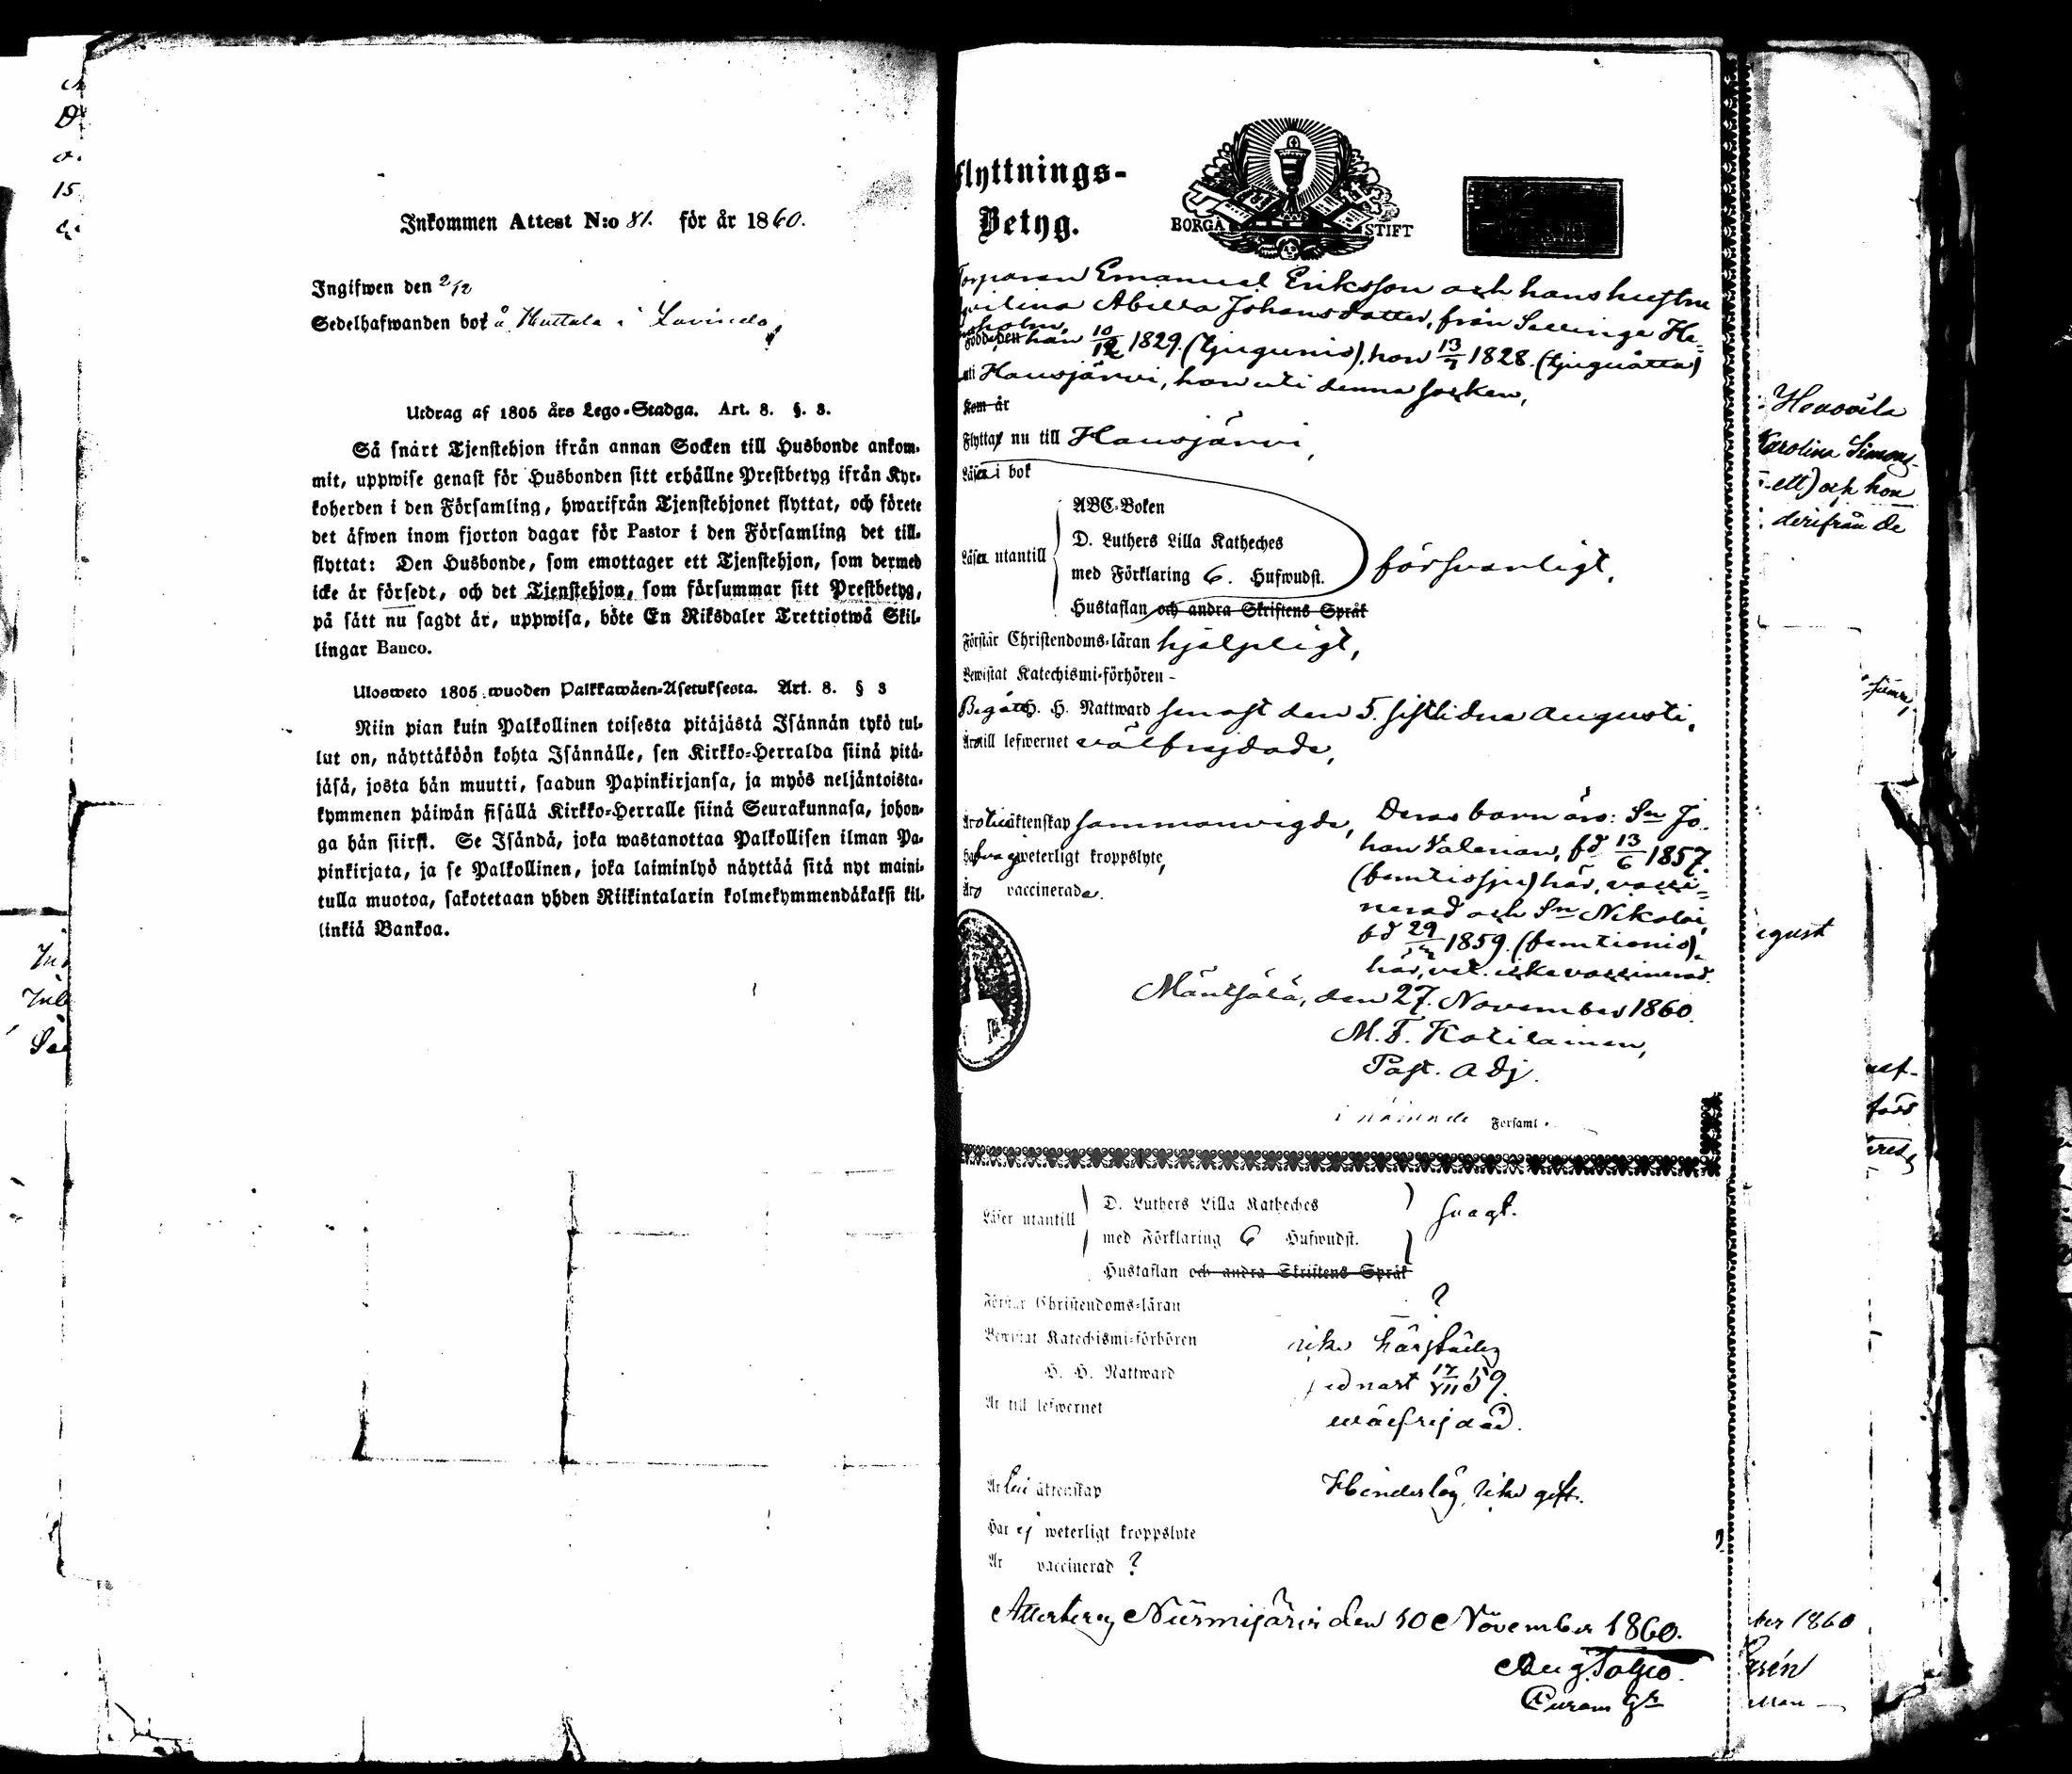 Inkommen Attest N:o 81. för år 1860.
Ingifwen den 2/12
Sedelhafwanden bor å Kuttala i Lavinda
Utdrag af 1805 års Lego-Stadga. Art. 8. §. 3.
Så snart Tjenstehjon ifrån annan Socken till Husbonde ankom-
mit, uppwise genast för Husbonden sitt erhållne Prestbetyg ifrån Kyr-
koherden i den Församling, hwarifrån Tjenstehjonet flyttat, och förete
det äfwen inom fjorton dagar för Pastor i den Församling det till-
flyttat: Den Husbonde, som emottager ett Tjenstehjon, som dermed
icke är försedt, och det Tjenstehjon, som försummar sitt Prestbetyg,
på sätt nu sagdt är, uppwisa, böte En Riksdaler Trettiotwå Skil-
lingar Banco.
Ulosweto 1805 wuoden Palkkawäen-Asetuksesta. Art. 8. § 3
Niin pian kuin Palkollinen toisesta pitäjästä Isännän tykö tul-
lut on, näyttäköön kohta Isännälle, sen Kirkko-Herralda siinä pitä-
jäsä, josta hän muutti, saadun Papinkirjansa, ja myös neljäntoista-
kymmenen päiwän sisällä Kirkko-Herralle siinä Seurakunnasa, johon-
ga hän siirst. Se Isändä, joka wastanottaa Palkollisen ilman Pa-
pinkirjata, ja se Palkollinen, joka laiminlyö näyttää sitä nyt maini-
tulla muotoa, sakotetaan yhden Riikintalarin kolmekymmendäkaksi kil-
linkiä Bankoa.
Flyttnings-
Betyg.
BORGÅ STIFT
Torparen Emanuel Eriksson och hans hustru
Abilla Johansdotter, från Sälinge
födde den han 10/12 1829. (tjugunio), hon 13/7 1828. (tjuguåtta)
uti Hausjärvi, hon uti denna socken,
Kom år
Flytta nu till Hausjärvi,
Läsa i bok
ABC-Boken
D. Luthers Lilla Katheches
Läsa utantill med Förklaring 6. Hufwudst. försvarligt,
Hustaflan och andra Skriftens Språk
Förstår Christendoms-läran hjelpligt,
Bewistat Katechismi-förhören -
Begått H. H. Nattward senast den 5. sistlidne Augusti,
Äro till lefwernet välfrejdade,
Äro till äktenskap sammanvigde, Deras barn äro: Sn Jo-
han Valerian, fd 13/6 1857.
Hafva ej weterligt kroppslyte, (femtiosju) här, vacci-
Äro vaccinerade. nerad och Sn Nikolai,
fd 29/12 1859. (femtionio),
här, icke vaccinerad.
Mäntsälä, den 27. November 1860.
M. F. Kotilainen,
Past. Adj.
i nämnde Forsaml.
D. Luthers Lilla Katheches
Läser utantill med Förklaring 6 Hufwudst. svagt.
Hustaflan och andra Skriftens Språk
Förstår Christendoms-läran ?
Bewistat Katechismi-förhören icke härstädes
H. H. Nattward sednast 17/VII 59.
Är till lefwernet wälfrejdad.
Är till äktenskap Hinderlös, icke gift.
Har ej weterligt kroppslyte
Är vaccinerad ?
Attesterar, Nurmijärvi den 10 November 1860.
Aug.
Henoola
Karolina Simons-
ett) och hon
derifrån de
ugust
ber 1860